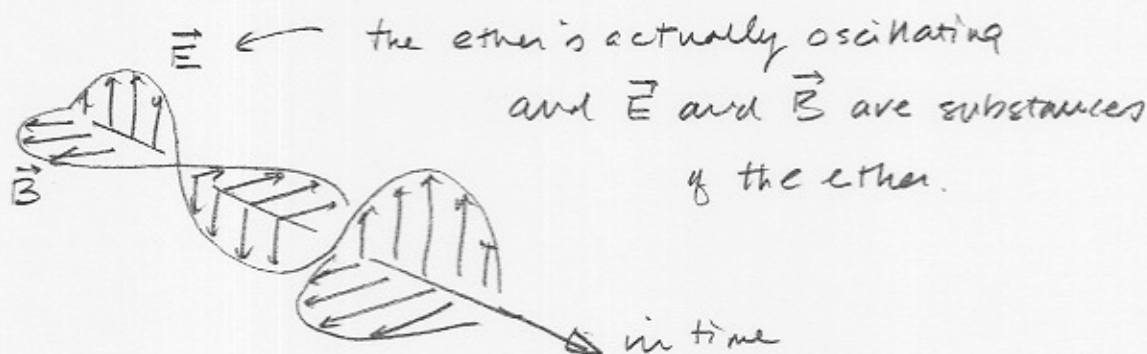 E⃗ ← the ether is actually oscillating
and E⃗ and B⃗ are substances
of the ether.
B⃗
in time